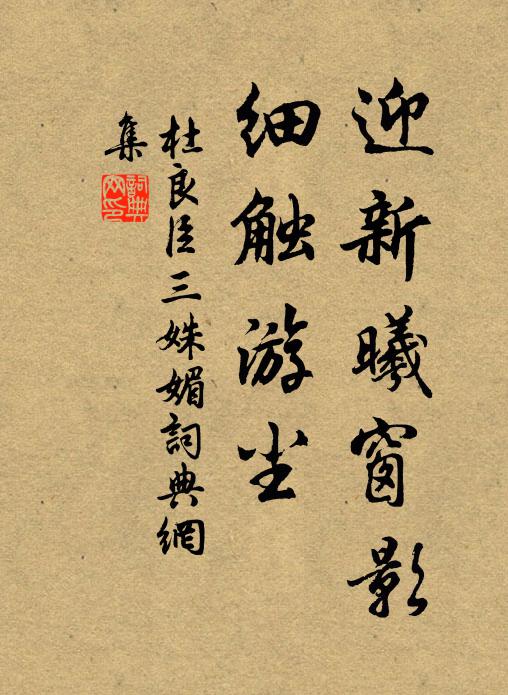 迎新曦窗影
细触游尘
杜良臣三姝媚詞典網
集
詞典
网印